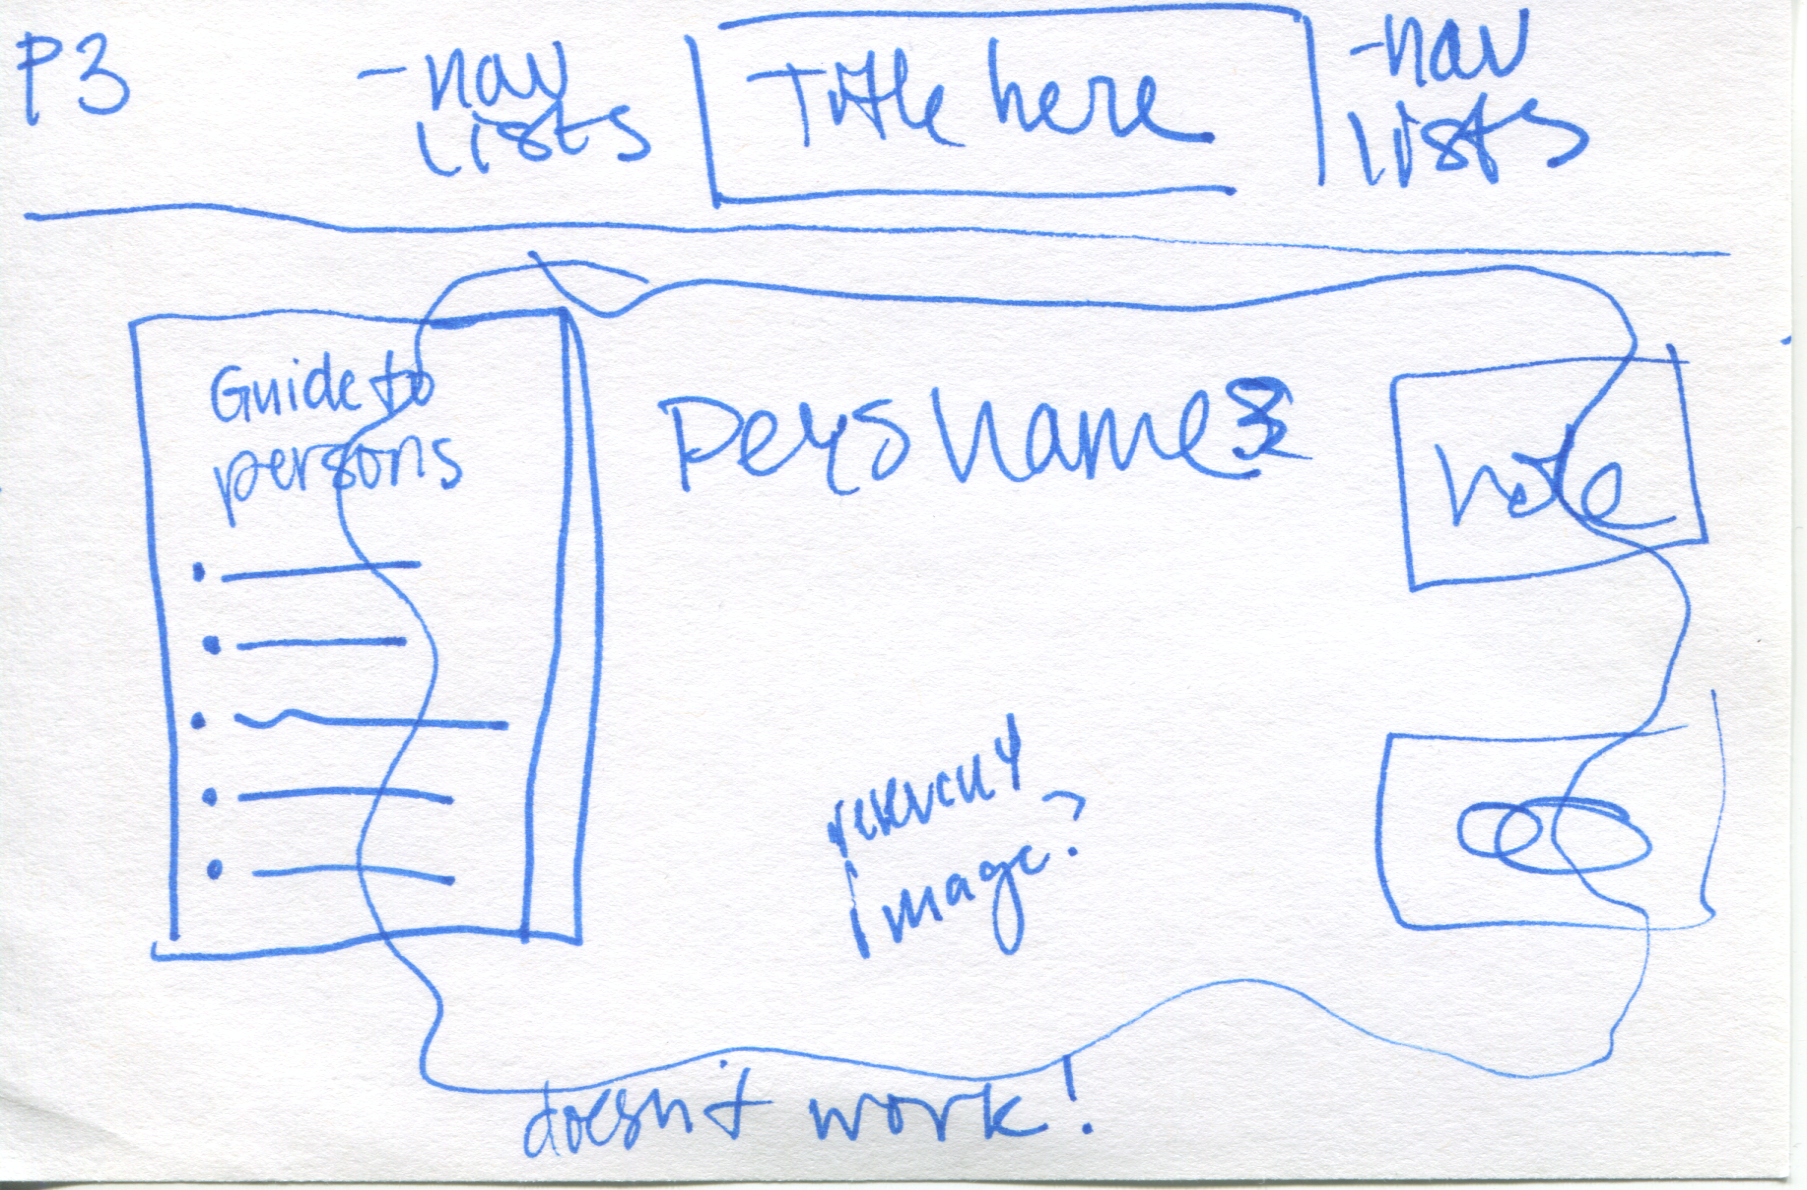 P3
-nav
lists
Title here
-nav
lists
Guide to
persons
Pers name
note
image?
doesn't work!